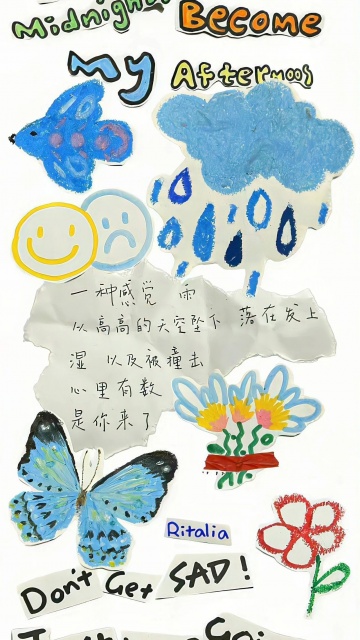 Midnight
Become
My Afternoon
一种感觉 雨
从高高的天空坠下 落在发上
湿 以及被撞击
心里有数
是你来了
Ritalia
Don't Get SAD!